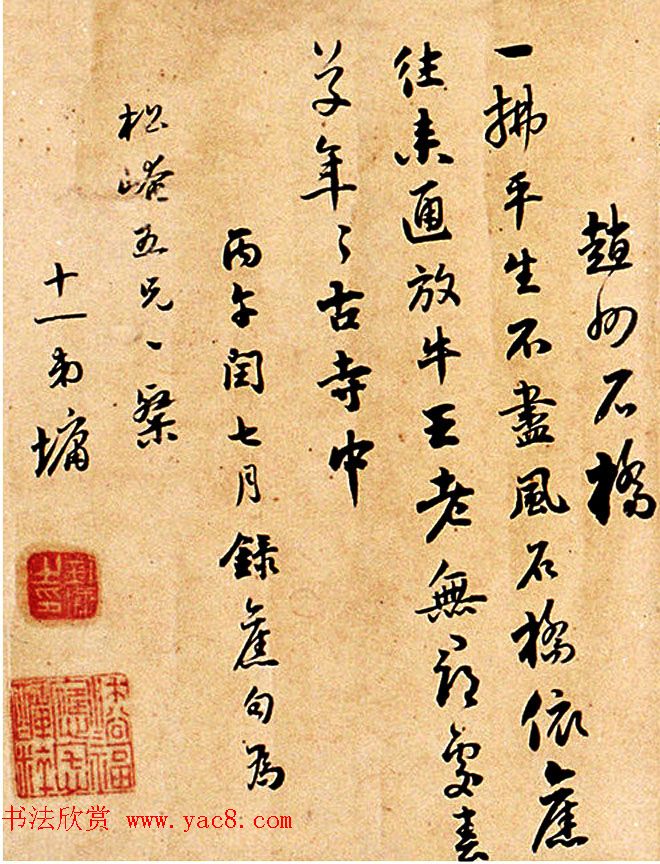 趙州石橋
一拂平生不盡風石橋依舊
往來通放牛王老無處春
草年〻古寺中
丙午閏七月錄舊句為
松崦五兄一粲
十一弟墉
劉墉之印
书法欣赏 www.yac8.com